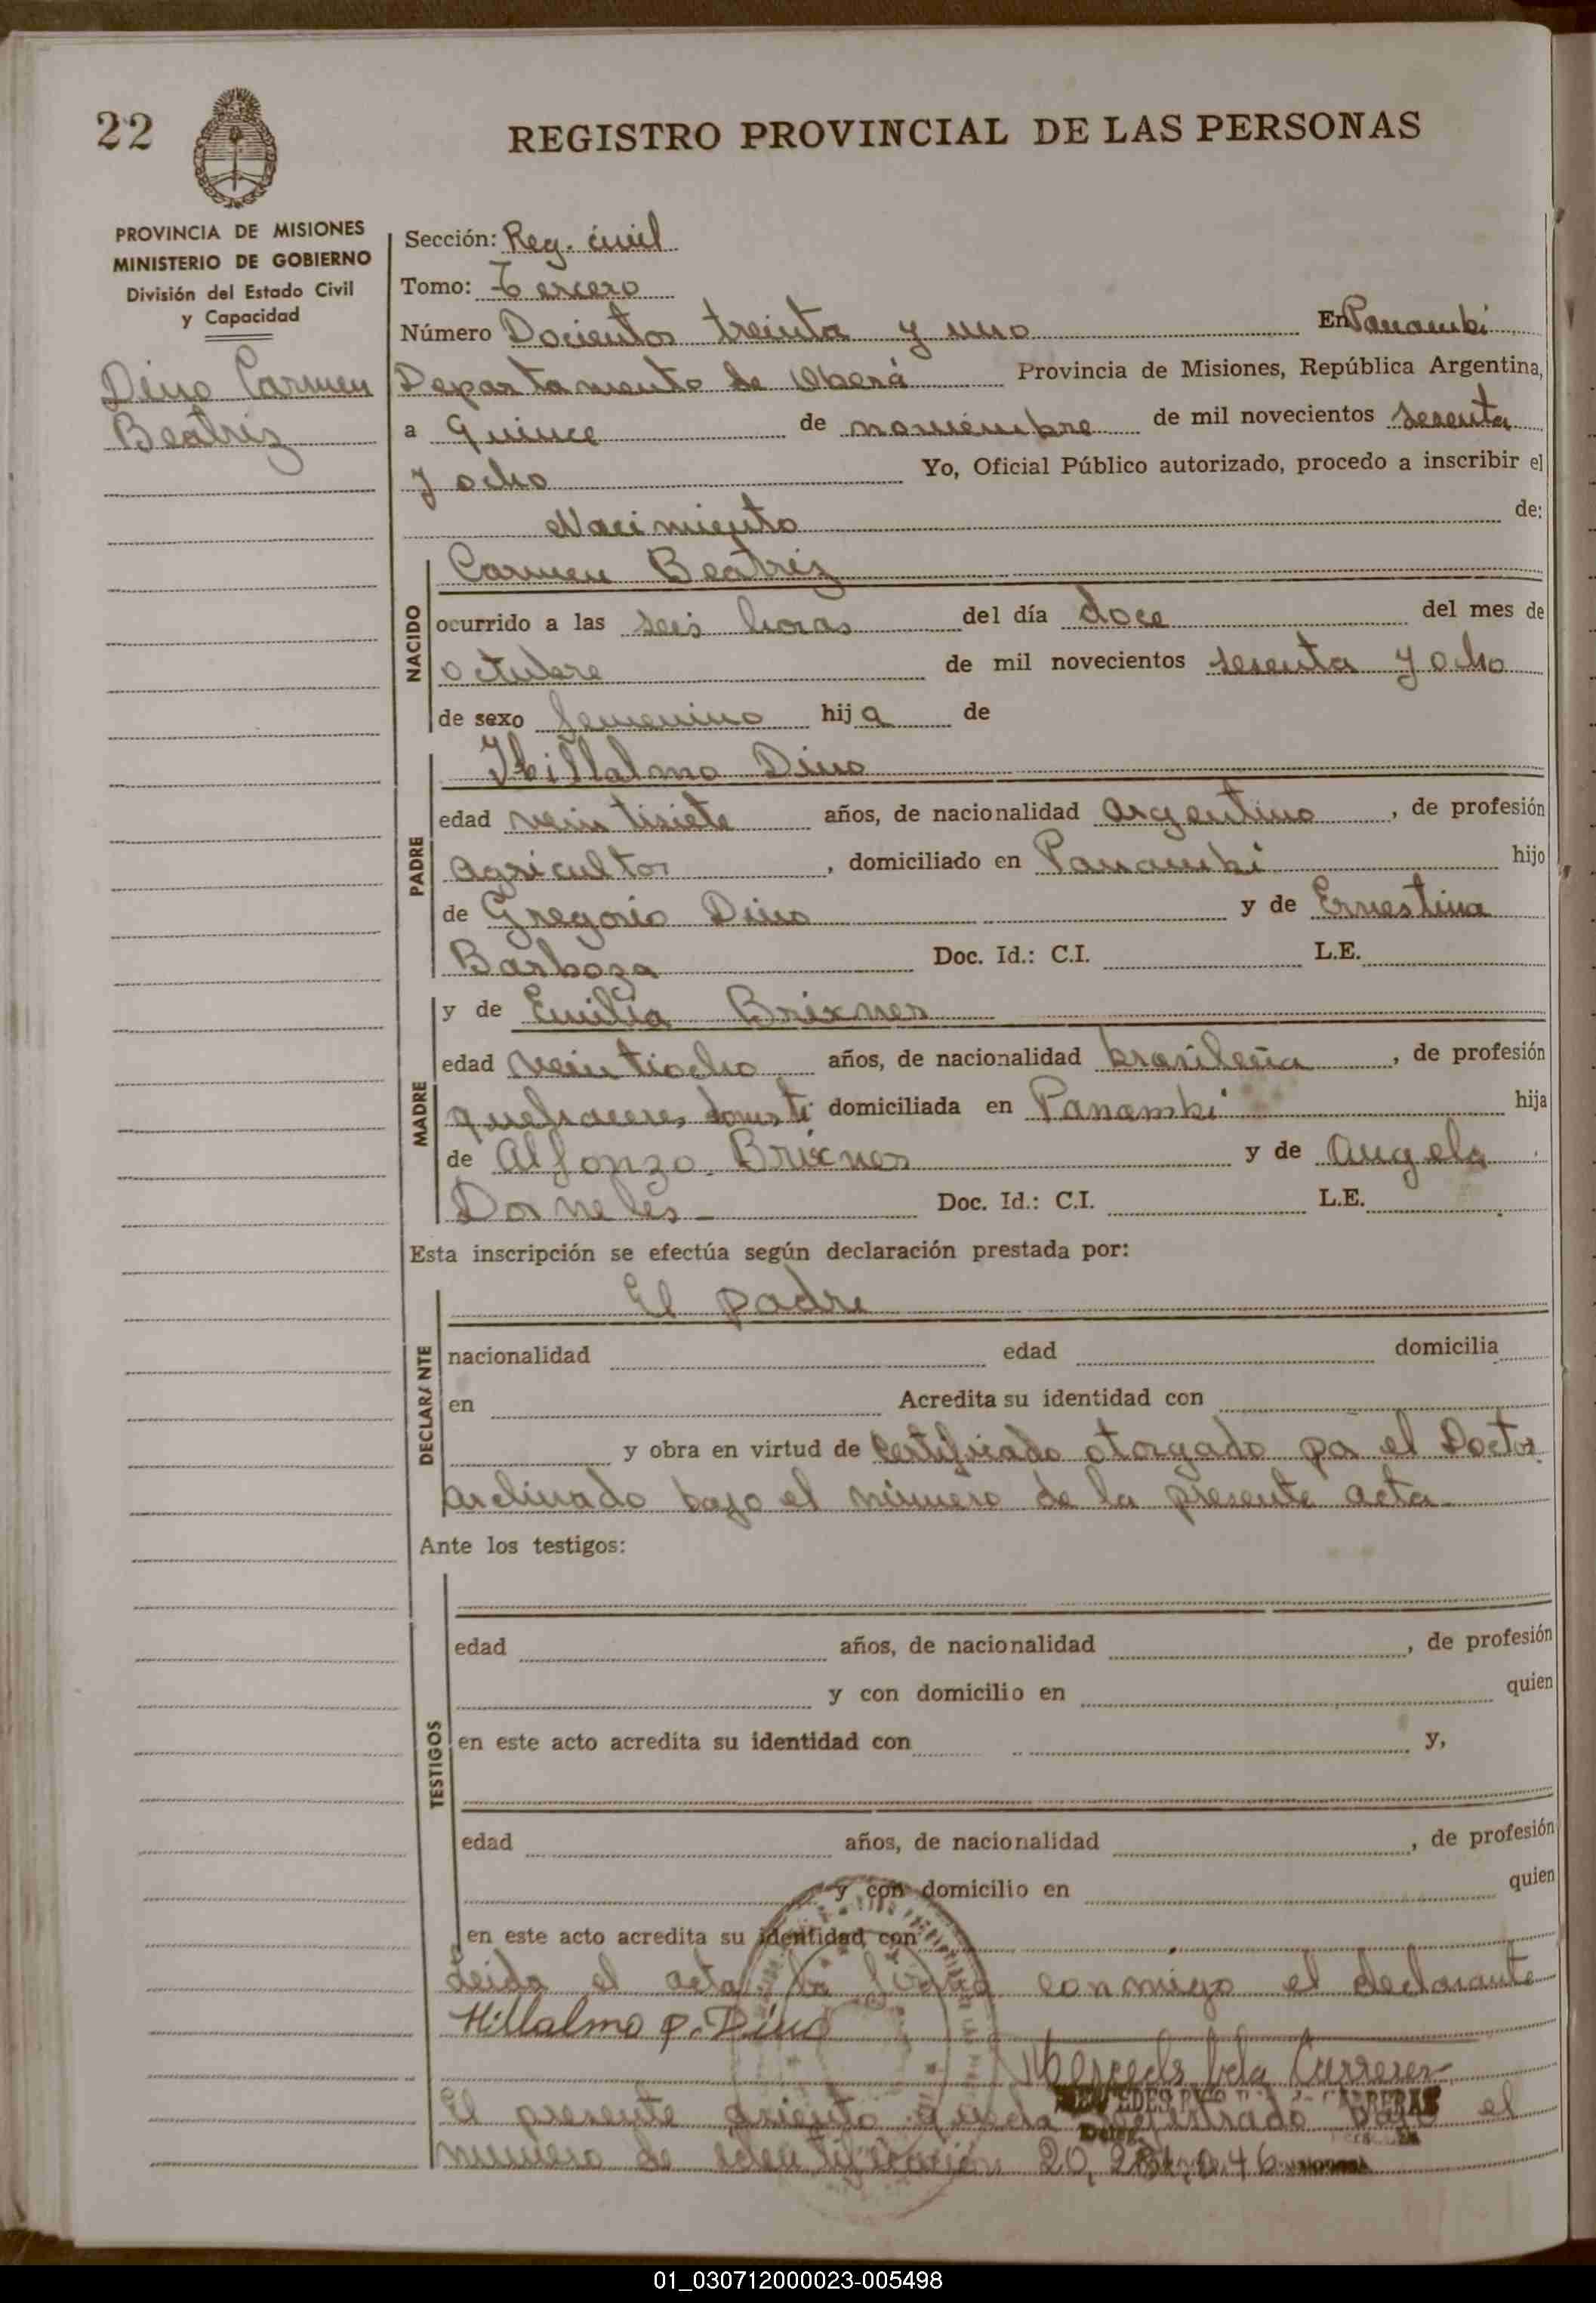 22
REGISTRO PROVINCIAL DE LAS PERSONAS
PROVINCIA DE MISIONES
MINISTERIO DE GOBIERNO
División del Estado Civil
y Capacidad
Dino Carmen
Beatriz
Sección: Reg. civil
Tomo: Tercero
Número Docientos treinta y uno En Panambi
Departamento de Oberá Provincia de Misiones, República Argentina,
a quince de noviembre de mil novecientos sesenta
y ocho Yo, Oficial Público autorizado, procedo a inscribir el
Nacimiento de:
NACIDO
Carmen Beatriz
ocurrido a las seis horas del día doce del mes de
octubre de mil novecientos sesenta y ocho
de sexo femenino hija de
PADRE
Dino
edad veintisiete años, de nacionalidad argentino, de profesión
agricultor, domiciliado en Panambi hijo
de Gregorio Dino y de Ernestina
Barboza Doc. Id.: C.I. L.E.
MADRE
y de Emilia Brixner
edad veintiocho años, de nacionalidad brasileña, de profesión
quehaceres domesti domiciliada en Panambi hija
de Alfonzo Brixner y de Angela
Dorneles Doc. Id.: C.I. L.E.
Esta inscripción se efectúa según declaración prestada por:
DECLARANTE
El padre
nacionalidad edad domicilia
en Acredita su identidad con
y obra en virtud de certificado otorgado por el Doctor
archivado bajo el número de la presente acta
Ante los testigos:
TESTIGOS
edad años, de nacionalidad , de profesión
y con domicilio en quien
en este acto acredita su identidad con y,
edad años, de nacionalidad , de profesión
y con domicilio en quien
en este acto acredita su identidad con
Leida el acta la firma conmigo el declarante
Hillalmo p. Dino
El presente asiento queda registrado bajo el
número de identificación
01_030712000023-005498